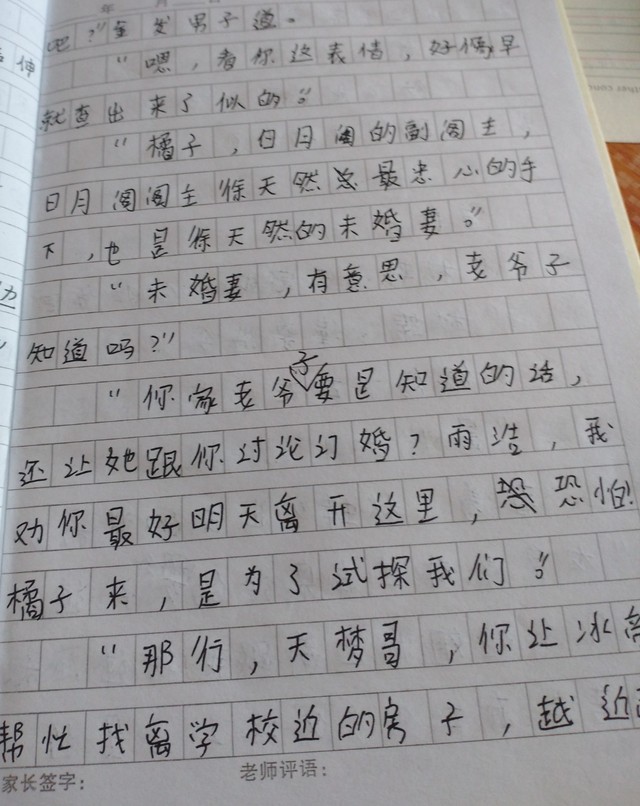 年 月 日
吧？”金发男子道。
“嗯，看你这表情，好像早
就查出来了似的。”
“橘子，日月阁的副阁主，
日月阁阁主徐天然最忠心的手
下，也是徐天然的未婚妻。”
“未婚妻，有意思，老爷子
知道吗？”
“你家老爷子要是知道的话，
还让她跟你讨论订婚？雨浩，我
劝你最好明天离开这里，恐怕！
橘子来，是为了试探我们。”
“那行，天梦哥，你让冰帝
帮忙找离学校近的房子，越近
家长签字： 老师评语：